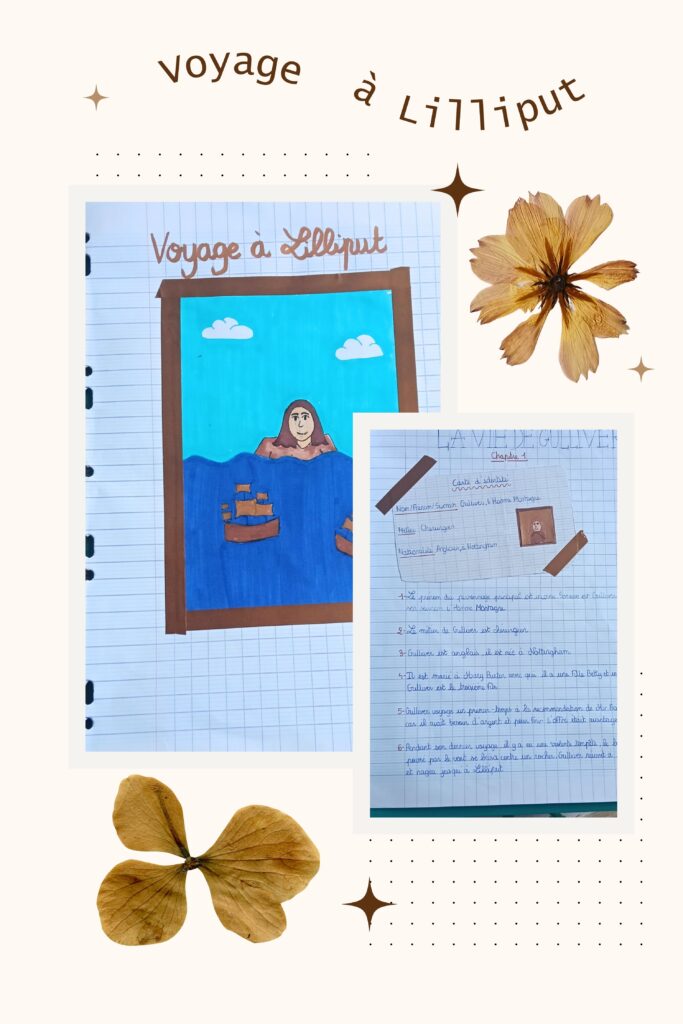 Voyage à Lilliput
Voyage à Lilliput
LA VIE DE GULLIVER
Chapitre 1
Carte d'identité
Nom/Prénom/Surnom: Gulliver, à Homme Montagne
Métier: Chirurgien
Nationalité: Anglais, à Nottingham
1- Le prénom du personnage principal et
son surnom à Homme Montagne
2- Le métier de Gulliver est chirurgien
3- Gulliver est anglais, il est né à Nottingham.
4- Il est marié à Mary Burton avec qui il a une fille Betty et un
Gulliver est le troisième fils.
5- Gulliver voyage un premier temps à la recommandation de Mr Ba
car il avait besoin d'argent et pour finir l'offre était avantage
6- Pendant son dernier voyage il y a eu une violente tempête, le b
poussé par le vent se brisa contre un rocher. Gulliver réussit à
et nagea jusqu'à Lilliput